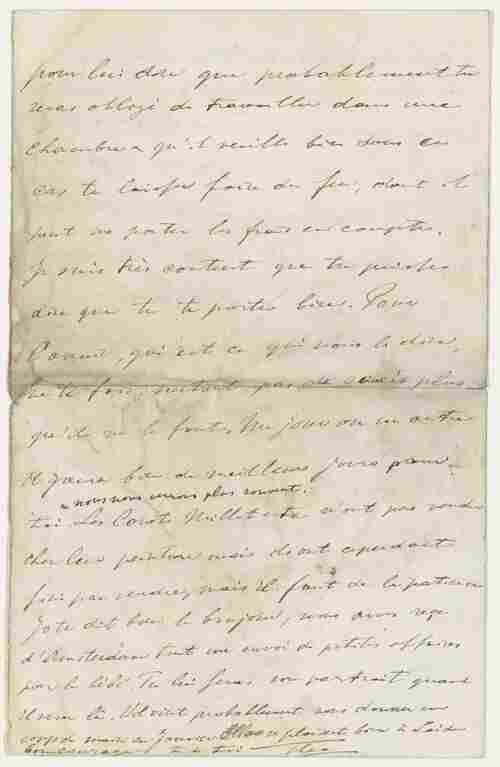 pour lui dire que probablement tu
seras obligé de travailler dans une
chambre & qu'il veuille bien dans ce
cas te laisser faire du feu, dont il
peut me porter les frais en compte.
Je suis très content que tu puisses
dire que tu te portes bien. Pour
l'avenir, qui est ce qui nous le dira,
ne te fais pas de soucis plus
qu'il ne le faut. Un jour ou un autre
il y aura bien de meilleurs jours pour
& nous nous verrons plus souvent.
toi. Les Corots Millet etc n'ont pas vendu
cher leur peinture mais ils ont cependant
fini par vendre, mais il faut de la patience
Jo te dit bien le bonjour, nous avons reçu
d'Amsterdam tout un envoi de petites affaires
pour le bébé. Tu lui feras son portrait quand
il sera là. Wil vient probablement nous donner un
coup de main en Janvier. Elle se plaisait bien à Leide
bon courage & à toi Theo